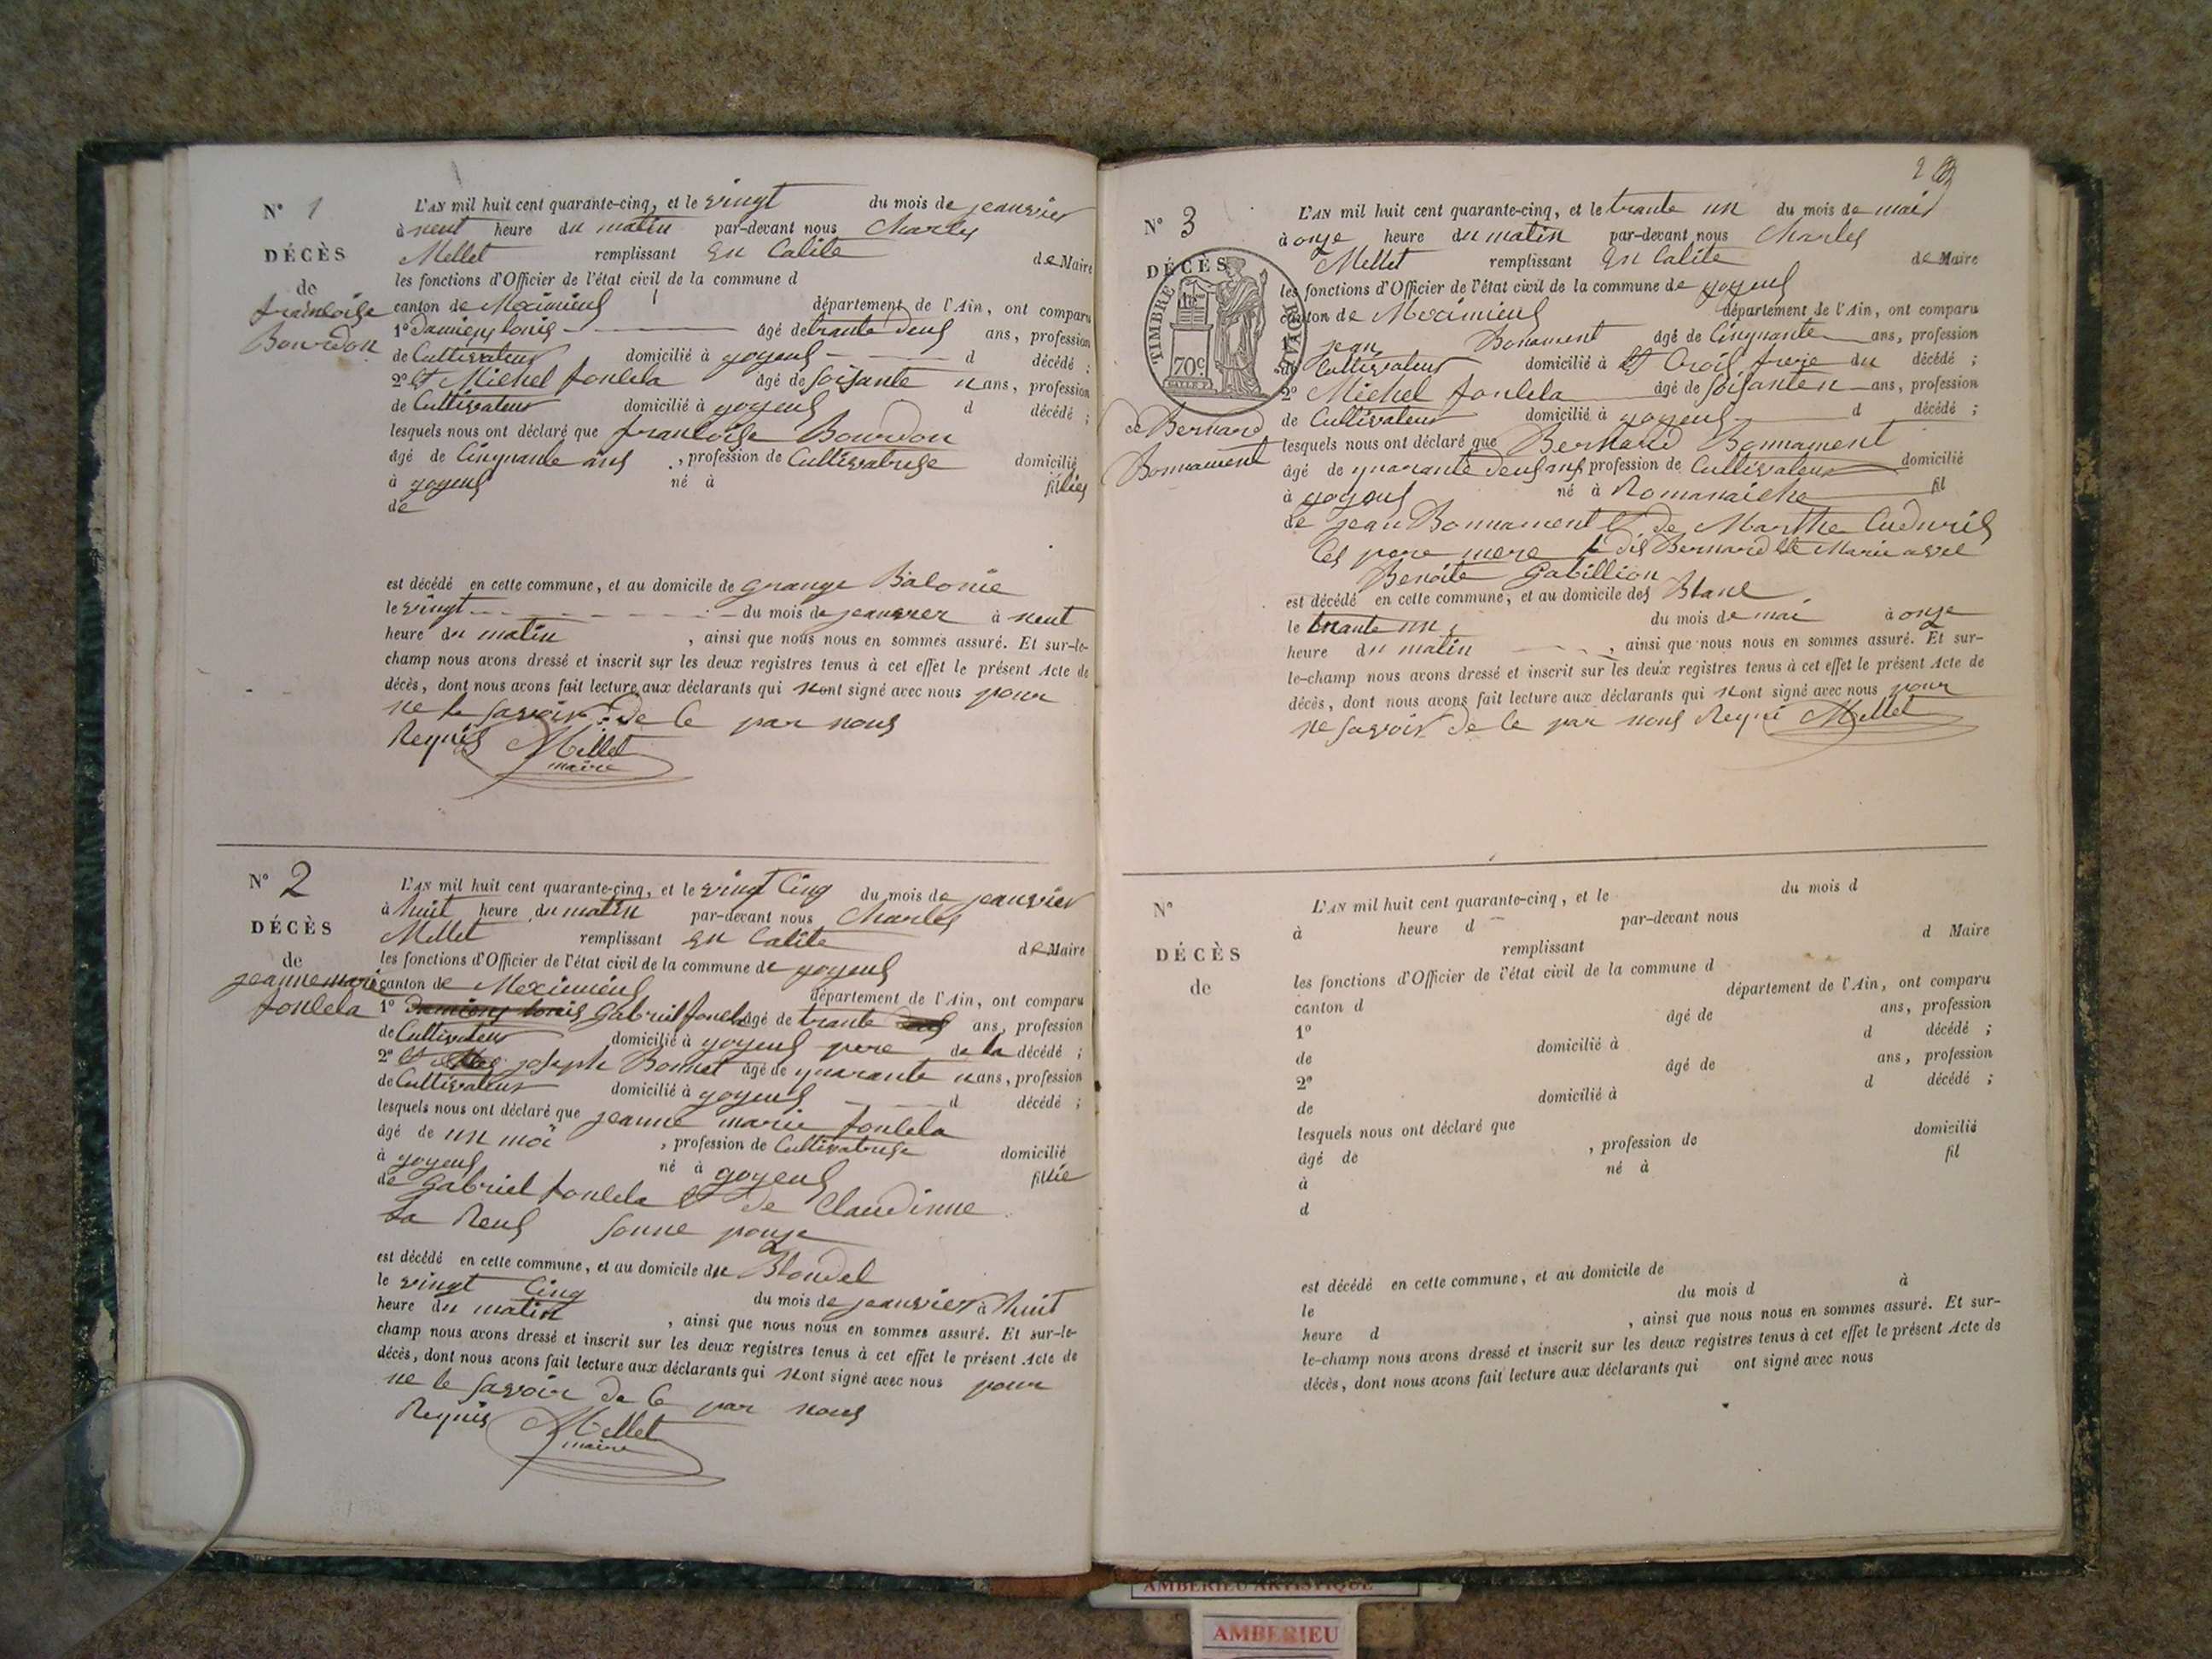 N° 1
DÉCÈS
de
francoise
Bourdon
L'AN mil huit cent quarante-cinq, et le vingt du mois de jeanvier
à neuf heure du matin par-devant nous Charles
Mellet remplissant En Calite de Maire
les fonctions d'Officier de l'état civil de la commune d
canton de Meximieus département de l'Ain, ont comparu
1° Louis âgé de trante deus ans, profession
de Cultivateur domicilié à joyeus d décédé ;
2° et Michel fonlela âgé de soisante n ans, profession
de Cultivateur domicilié à joyeus d décédé ;
lesquels nous ont déclaré que francoise Bourdon
âgé de Cinquante ans , profession de Cultivatrise domicilié
à joyeus né à fil
de
est décédé en cette commune, et au domicile de grange Balonie
le vingt du mois de jeanvier à neuf
heure du matin , ainsi que nous nous en sommes assuré. Et sur-le-
champ nous avons dressé et inscrit sur les deux registres tenus à cet effet le présent Acte de
décès, dont nous avons fait lecture aux déclarants qui n'ont signé avec nous pour
ne le savoir de ce par nous
Requis Mellet
maire
N° 2
DÉCÈS
de
jeanne marie
fonlela
L'AN mil huit cent quarante-cinq, et le vingt Cinq du mois de jeanvier
à huit heure du matin par-devant nous Charles
Mellet remplissant En Calite de Maire
les fonctions d'Officier de l'état civil de la commune de joyeus
canton de Meximieus département de l'Ain, ont comparu
1° Gabriel fonlela âgé de trante ans, profession
de Cultivateur domicilié à joyeus pere de la décédé ;
2° et joseph Bonnet âgé de quarante n ans, profession
de Cultivateur domicilié à joyeus d décédé ;
lesquels nous ont déclaré que jeanne marie fonlela
âgé de un moi , profession de Cultivatrise domicilié
à joyeus né à joyeus fillie
de Gabriel fonlela et de Claudinne
sonne pouse
est décédé en cette commune, et au domicile du Blondel
le vingt Cinq du mois de jeanvier à huit
heure du matin , ainsi que nous nous en sommes assuré. Et sur-le-
champ nous avons dressé et inscrit sur les deux registres tenus à cet effet le présent Acte de
décès, dont nous avons fait lecture aux déclarants qui n'ont signé avec nous pour
ne le savoir de ce par nous
Requis Mellet
maire
N° 3
DÉCÈS
TIMBRE ROYAL
70c
de Bernard
Bonnament
L'AN mil huit cent quarante-cinq, et le trante un du mois de mai
à onze heure du matin par-devant nous Charles
Mellet remplissant En Calite de Maire
les fonctions d'Officier de l'état civil de la commune de joyeus
canton de Meximieus département de l'Ain, ont comparu
jean Bonament âgé de Cinquante ans, profession
de Cultivateur domicilié à St Crois freze du décédé ;
2° Michel fonlela âgé de soisante n ans, profession
de Cultivateur domicilié à joyeus d décédé ;
lesquels nous ont déclaré que Bernard Bonnament
âgé de quarante deus ans profession de Cultivateur domicilié
à joyeus né à Romanaiche fil
de jean Bonnament et de Marthe
Ces pere mere Bernard Marie avee
Benoite Gabillion
est décédé en cette commune, et au domicile des Blanc
le trante un du mois de mai à onze
heure du matin , ainsi que nous nous en sommes assuré. Et sur-
le-champ nous avons dressé et inscrit sur les deux registres tenus à cet effet le présent Acte de
décès, dont nous avons fait lecture aux déclarants qui n'ont signé avec nous pour
ne savoir de ce par nous Requi Mellet
N°
DÉCÈS
de
L'AN mil huit cent quarante-cinq, et le du mois d
à heure d par-devant nous
remplissant d Maire
les fonctions d'Officier de l'état civil de la commune d
canton d département de l'Ain, ont comparu
1° âgé de ans, profession
de domicilié à d décédé ;
2° âgé de ans, profession
de domicilié à d décédé ;
lesquels nous ont déclaré que
âgé de , profession de domicilié
à né à fil
d
est décédé en cette commune, et au domicile de
le du mois d à
heure d , ainsi que nous nous en sommes assuré. Et sur-
le-champ nous avons dressé et inscrit sur les deux registres tenus à cet effet le présent Acte de
décès, dont nous avons fait lecture aux déclarants qui ont signé avec nous
AMBERIEU ARTISTIQUE
AMBERIEU